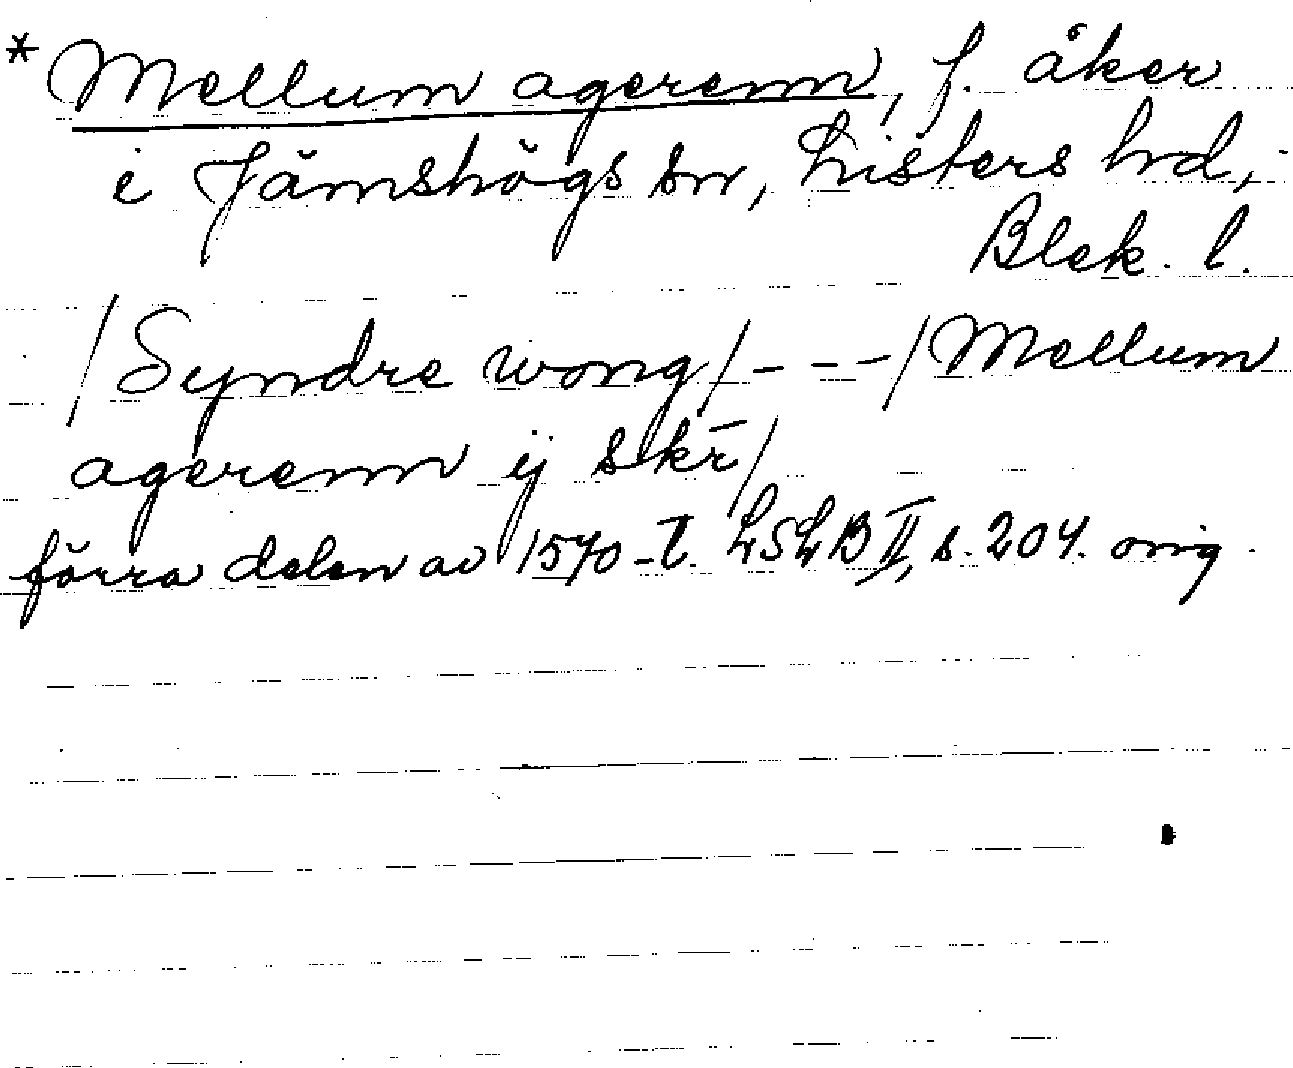 * Mellum agerenn, f. åker
i Jämshögs sn, Listers hd,
Blek. l.
/Syndre wong/---/Mellum
agerenn ij skr̄/
förra delen av 1570-t. LSLB II, s. 204. orig.